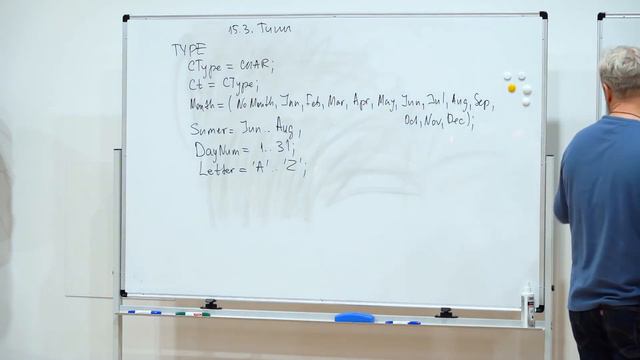 15.3. Типи
TYPE
CType = CHAR;
Ct = CType;
Month = ( NoMonth, Jan, Feb, Mar, Apr, May, Jun, Jul, Aug, Sep,
Oct, Nov, Dec);
Sumer = Jun .. Aug,
DayNum = 1..31;
Letter = 'A'..'Z';